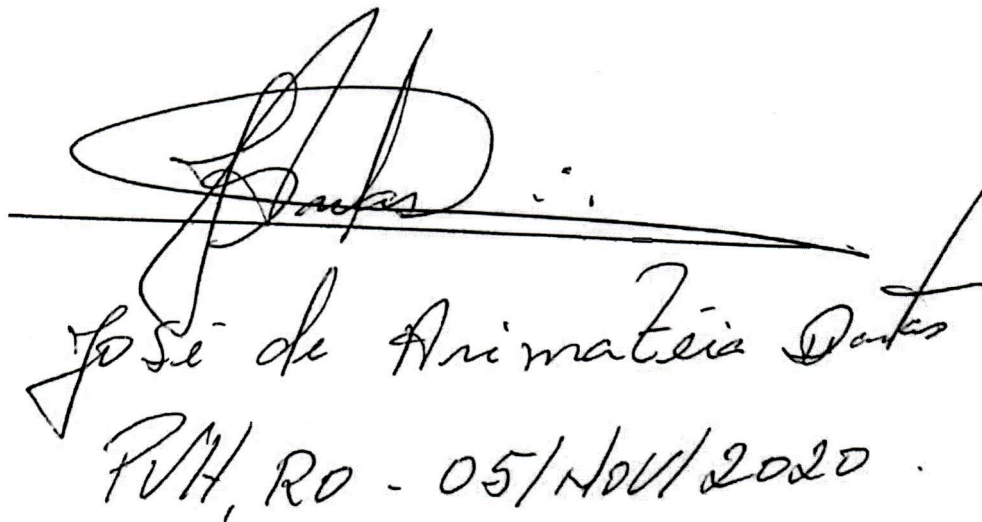 Dantas
José de Arimatéia Dantas
PVH, RO - 05/NOV/2020.